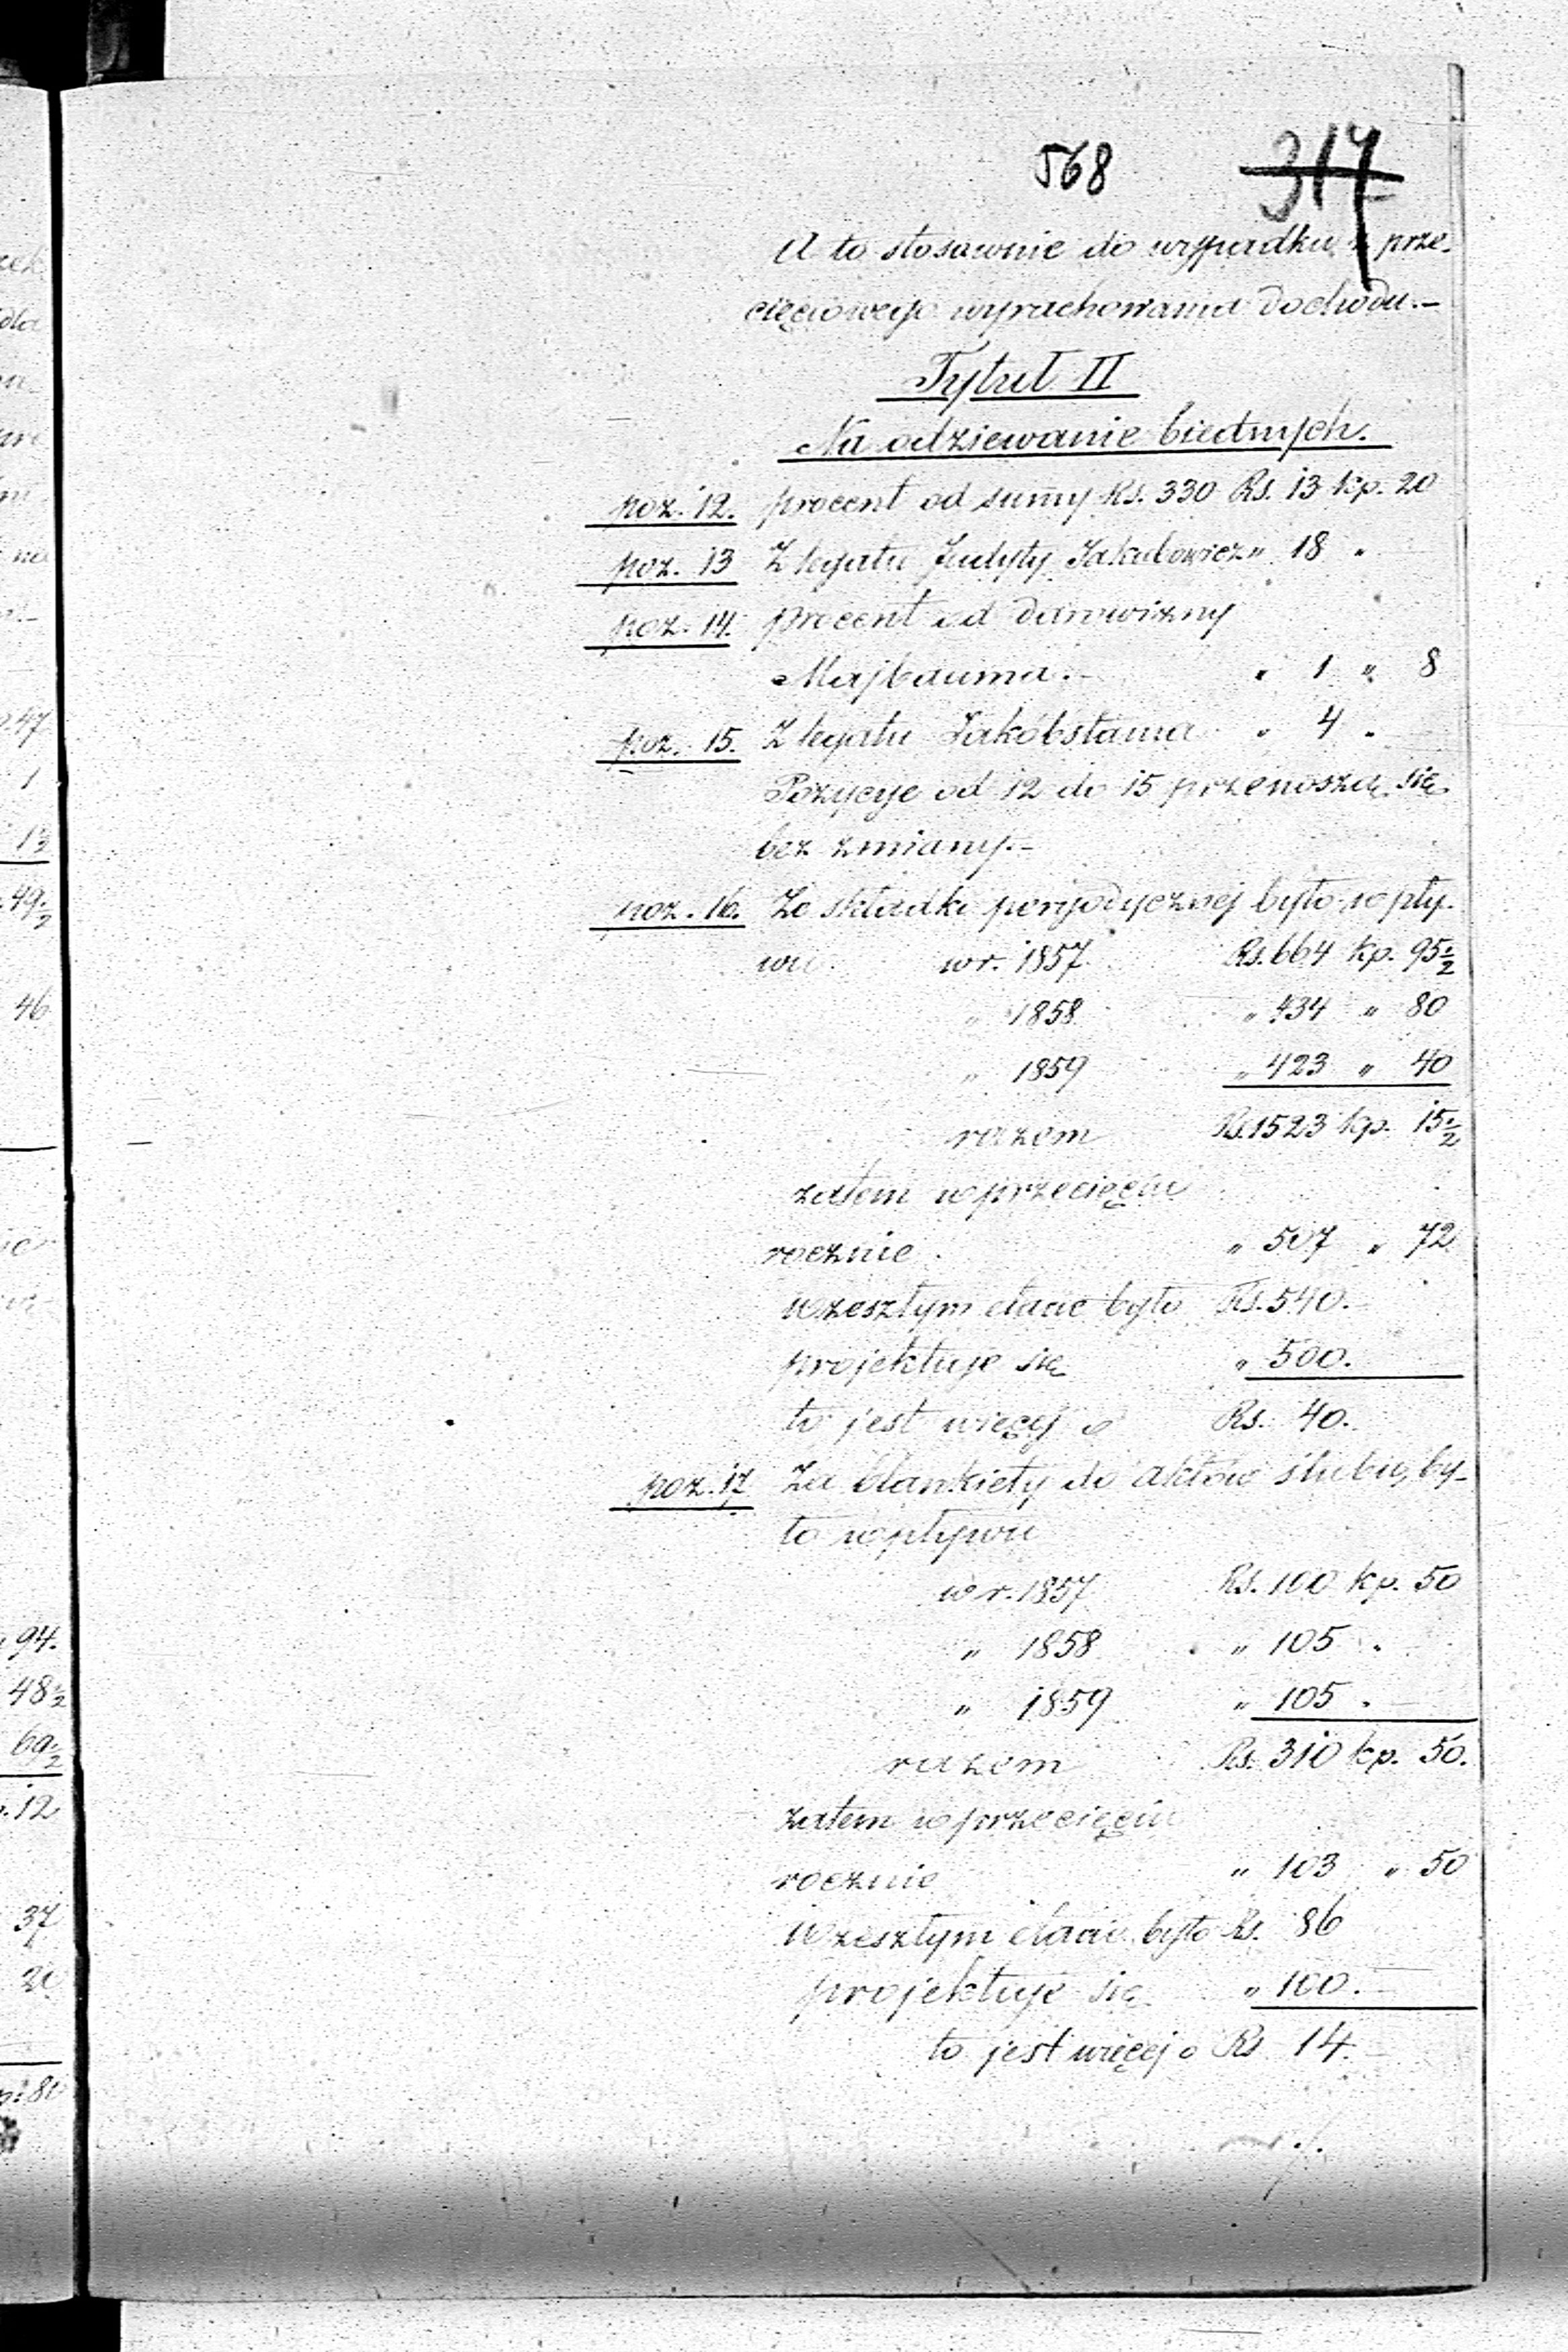 568 317
A to stosownie do wypadku z prze-
cięciowego wyrachowania dochodu.-
Tytuł II
Na odziewanie biednych.
poz. 12. procent od summy Rs. 330 Rs. 13 kp. 20
poz. 13 Z legatu Judyty Jakubowicz " 18 "
poz. 14. procent od darowizny
Majbauma.- " 1 " 8
poz. 15. Z legatu Jakóbstama " 4 "
Pozycye od 12 do 15 przenoszą się
bez zmiany.-
poz. 16. Ze składki peryodycznej było wpły-
wu w r. 1857 Rs. 664 kp. 95½
" 1858 " 434 " 80
" 1859 " 423 " 40
razem Rs. 1523 kp. 15½
zatem w przecięciu
rocznie " 507 " 72
w zeszłym etacie było Rs. 540.
projektuje się " 500.
to jest więcej o Rs. 40.
poz. 17 Za blankiety do aktów ślubu, by-
ło wpływu
w r. 1857 Rs. 100 kp. 50
" 1858 " 105 "
" 1859 " 105 "
razem Rs. 310 kp. 50.
zatem w przecięciu
rocznie " 103 " 50
w zeszłym etacie było Rs. 86
projektuje się " 100.-
to jest więcej o Rs 14.-
./.